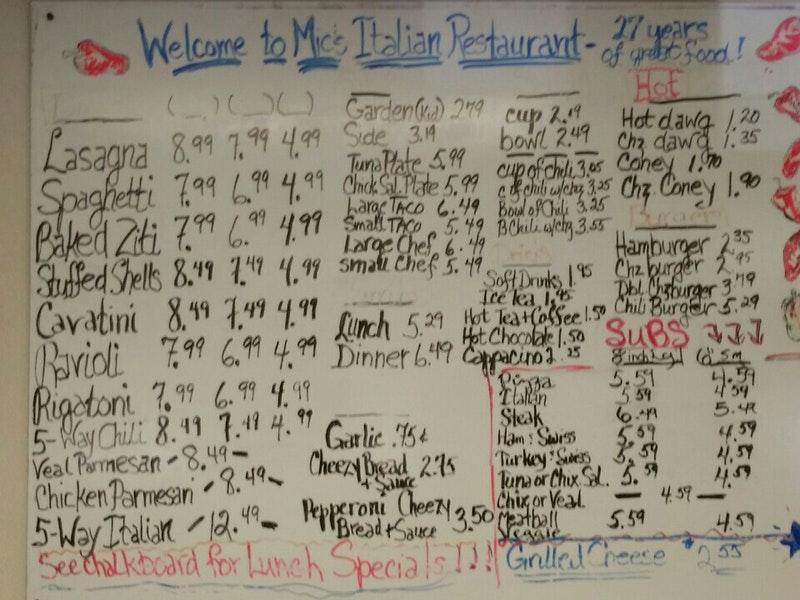 Welcome to Mic's Italian Restaurant - 27 years of great food!
( ) ( ) ( )
Lasagna 8.99 7.99 4.99
Spaghetti 7.99 6.99 4.99
Baked Ziti 7.99 6.99 4.99
Stuffed Shells 8.49 7.49 4.99
Cavatini 8.49 7.49 4.99
Ravioli 7.99 6.99 4.99
Rigatoni 7.99 6.99 4.99
5-Way Chili 8.49 7.49 4.99
Veal Parmesan - 8.49-
Chicken Parmesan - 8.49-
5-Way Italian - 12.49-
See chalkboard for Lunch Specials!!!
Garden (Kid) 2.79
Side 3.19
Tuna Plate 5.99
Chick Sal. Plate 5.99
Large Taco 6.49
Small Taco 5.49
Large Chef 6.49
small chef 5.49
Lunch 5.29
Dinner 6.49
Garlic .75¢
Cheezy Bread + Sauce 2.75
Pepperoni Cheezy Bread + Sauce 3.50
cup 2.19
bowl 2.49
cup of chili 3.05
c of chili w/chz 3.25
Bowl of Chili 3.25
B Chili w/chz 3.55
Soft Drinks 1.95
Ice Tea 1.95
Hot Tea + Coffee 1.50
Hot Chocolate 1.50
Cappacino 2.25
Hot
Hot dawg 1.20
Chz dawg 1.35
Coney 1.70
Chz Coney 1.90
Burgers
Hamburger 2.35
Chz burger 2.95
Dbl Chzburger 3.79
Chili Burger 5.29
SUBS
Pizza 5.59 4.59
Italian 5.59 4.59
Steak 6.49 5.49
Ham + Swiss 5.59 4.59
Turkey + Swiss 5.59 4.59
Tuna or Chix Sal. 5.59 4.59
Chix or Veal — 4.59 —
Meatball 5.59 4.59
Veggie
Grilled Cheese 2.55